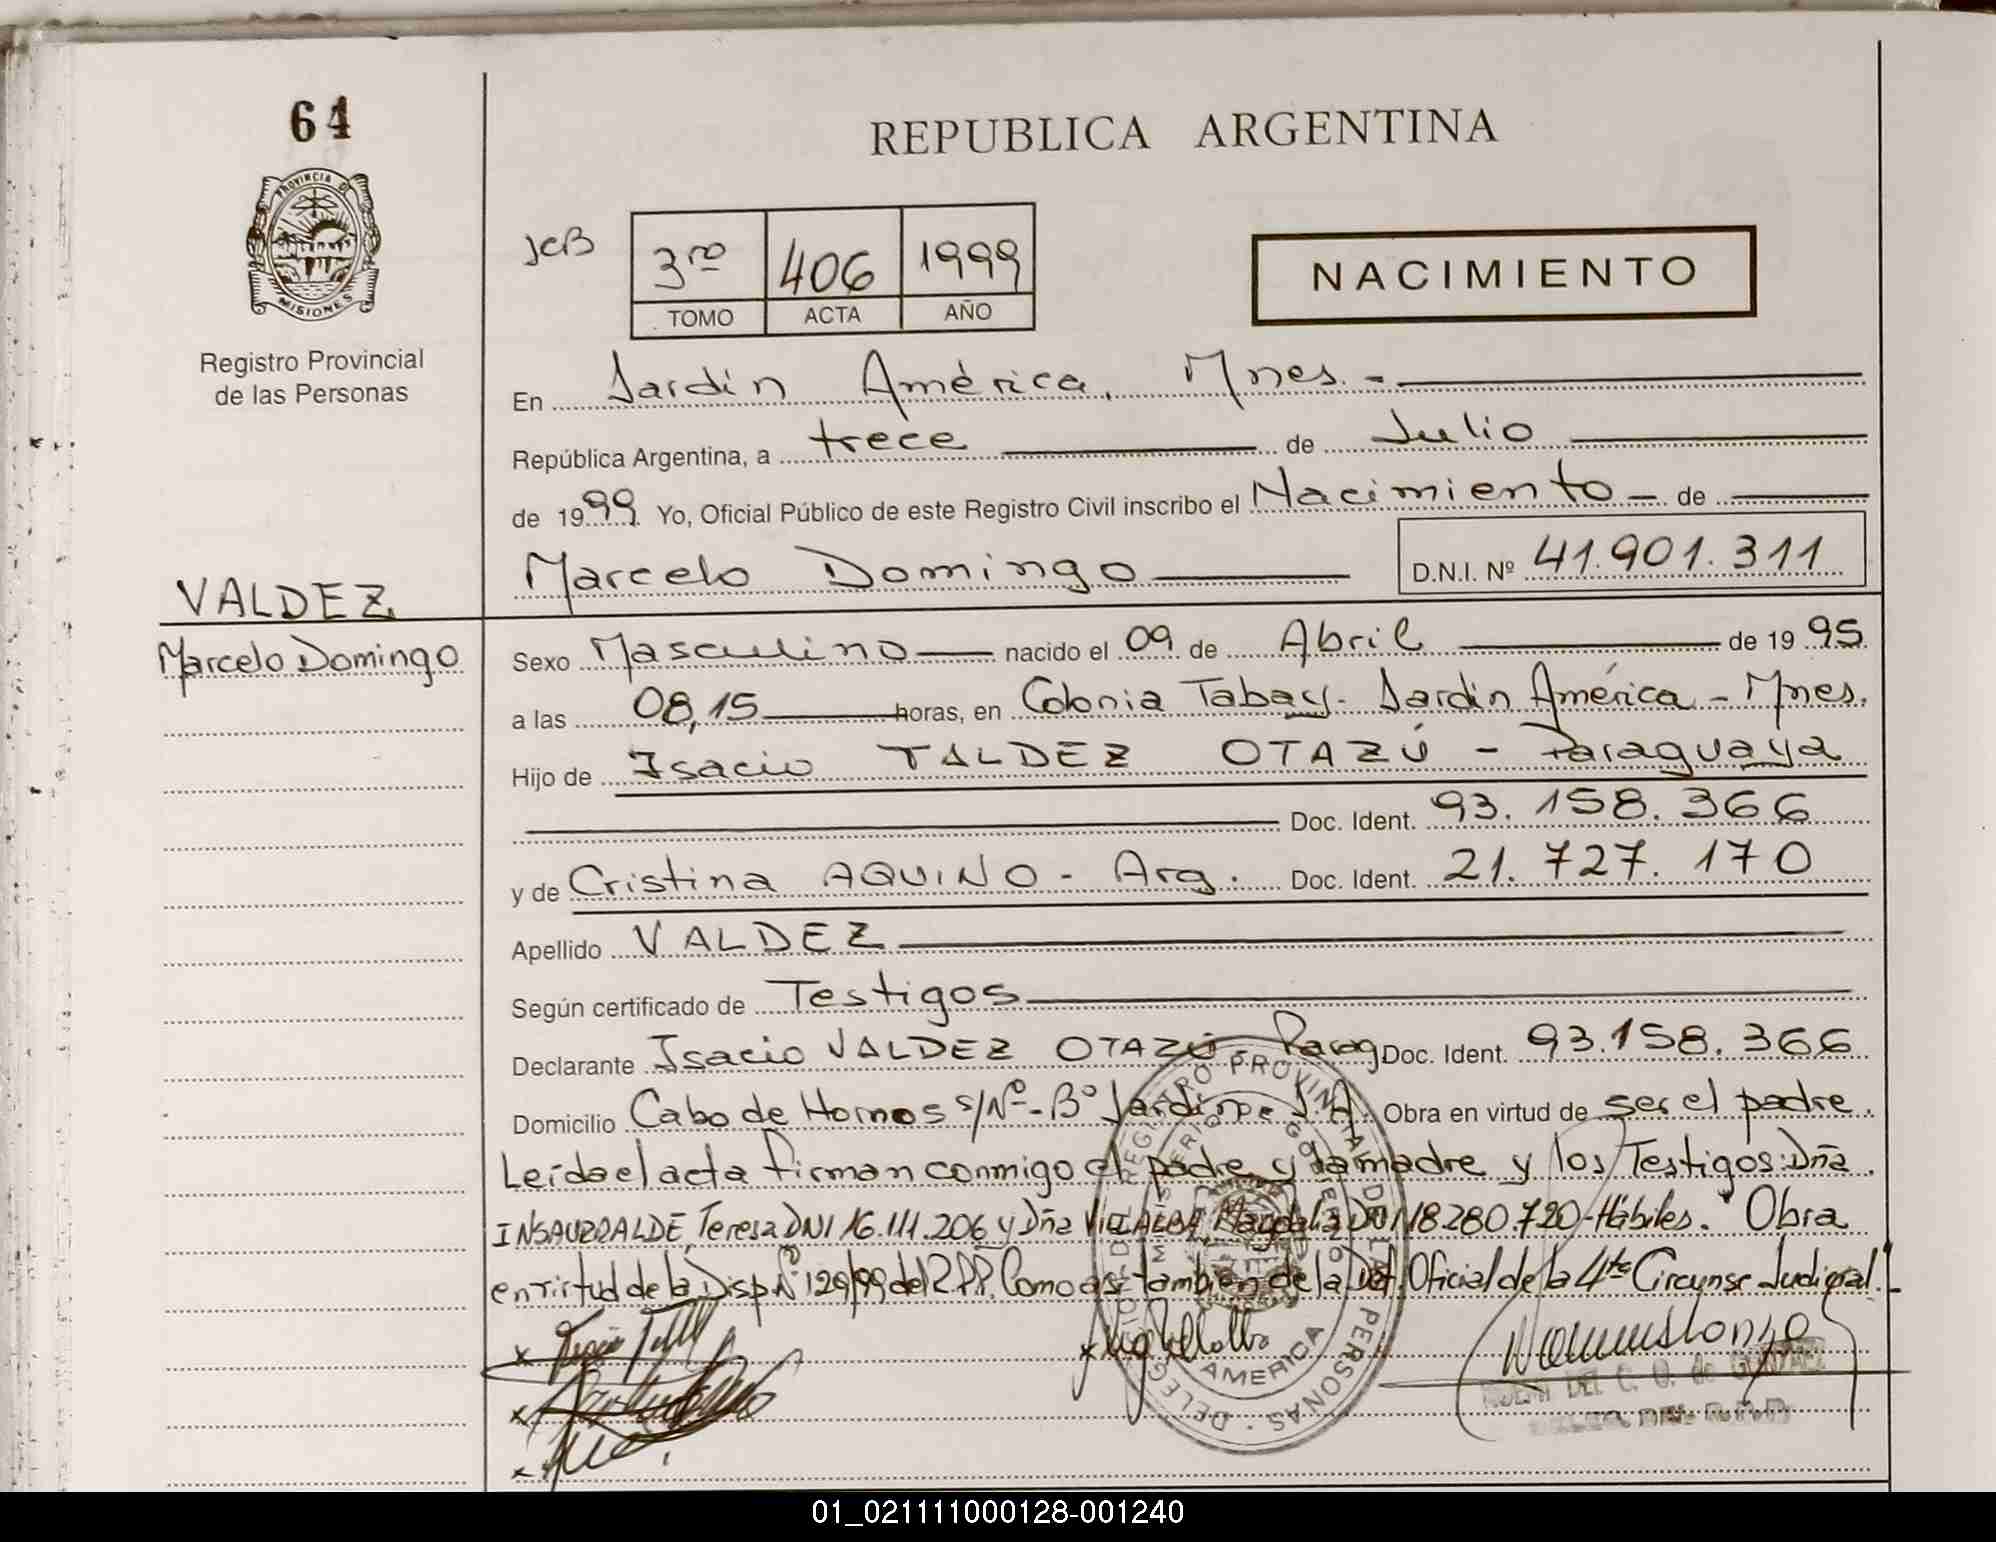 64
PROVINCIA D
MISIONES
Registro Provincial
de las Personas
REPUBLICA ARGENTINA
JCB
3ro 406 1999
TOMO ACTA AÑO
NACIMIENTO
En Jardín América, Mnes.-
República Argentina, a trece de Julio
de 1999. Yo, Oficial Público de este Registro Civil inscribo el Nacimiento de
Marcelo Domingo D.N.I. Nº 41.901.311
VALDEZ
Marcelo Domingo
Sexo Masculino nacido el 09 de Abril de 1995
a las 08,15 horas, en Colonia Tabay- Jardín América - Mnes.
Hijo de Isacio VALDEZ OTAZÚ - Paraguaya
Doc. Ident. 93.158.366
y de Cristina AQUINO - Arg. Doc. Ident. 21.727.170
Apellido VALDEZ
Según certificado de Testigos
Declarante Isacio VALDEZ OTAZÚ- Parag Doc. Ident. 93.158.366
Domicilio Cabo de Hornos s/Nº- Bº Jardín J.A. Obra en virtud de ser el padre.
Leída el acta firman conmigo el padre y la madre y los Testigos: Dña.
INSAURRALDE, Teresa DNI 16.111.206 y Dña VILLALBA, Magdalena DNI 18.280.720-Hábiles. Obra
en virtud de la Disp. Nº 129/99 del R.P.P. Como así también de la Def. Oficial de la 4ta Circunsc Judicial.
REGISTRO PROVINCIAL DE LAS PERSONAS
AMERICA
01_021111000128-001240